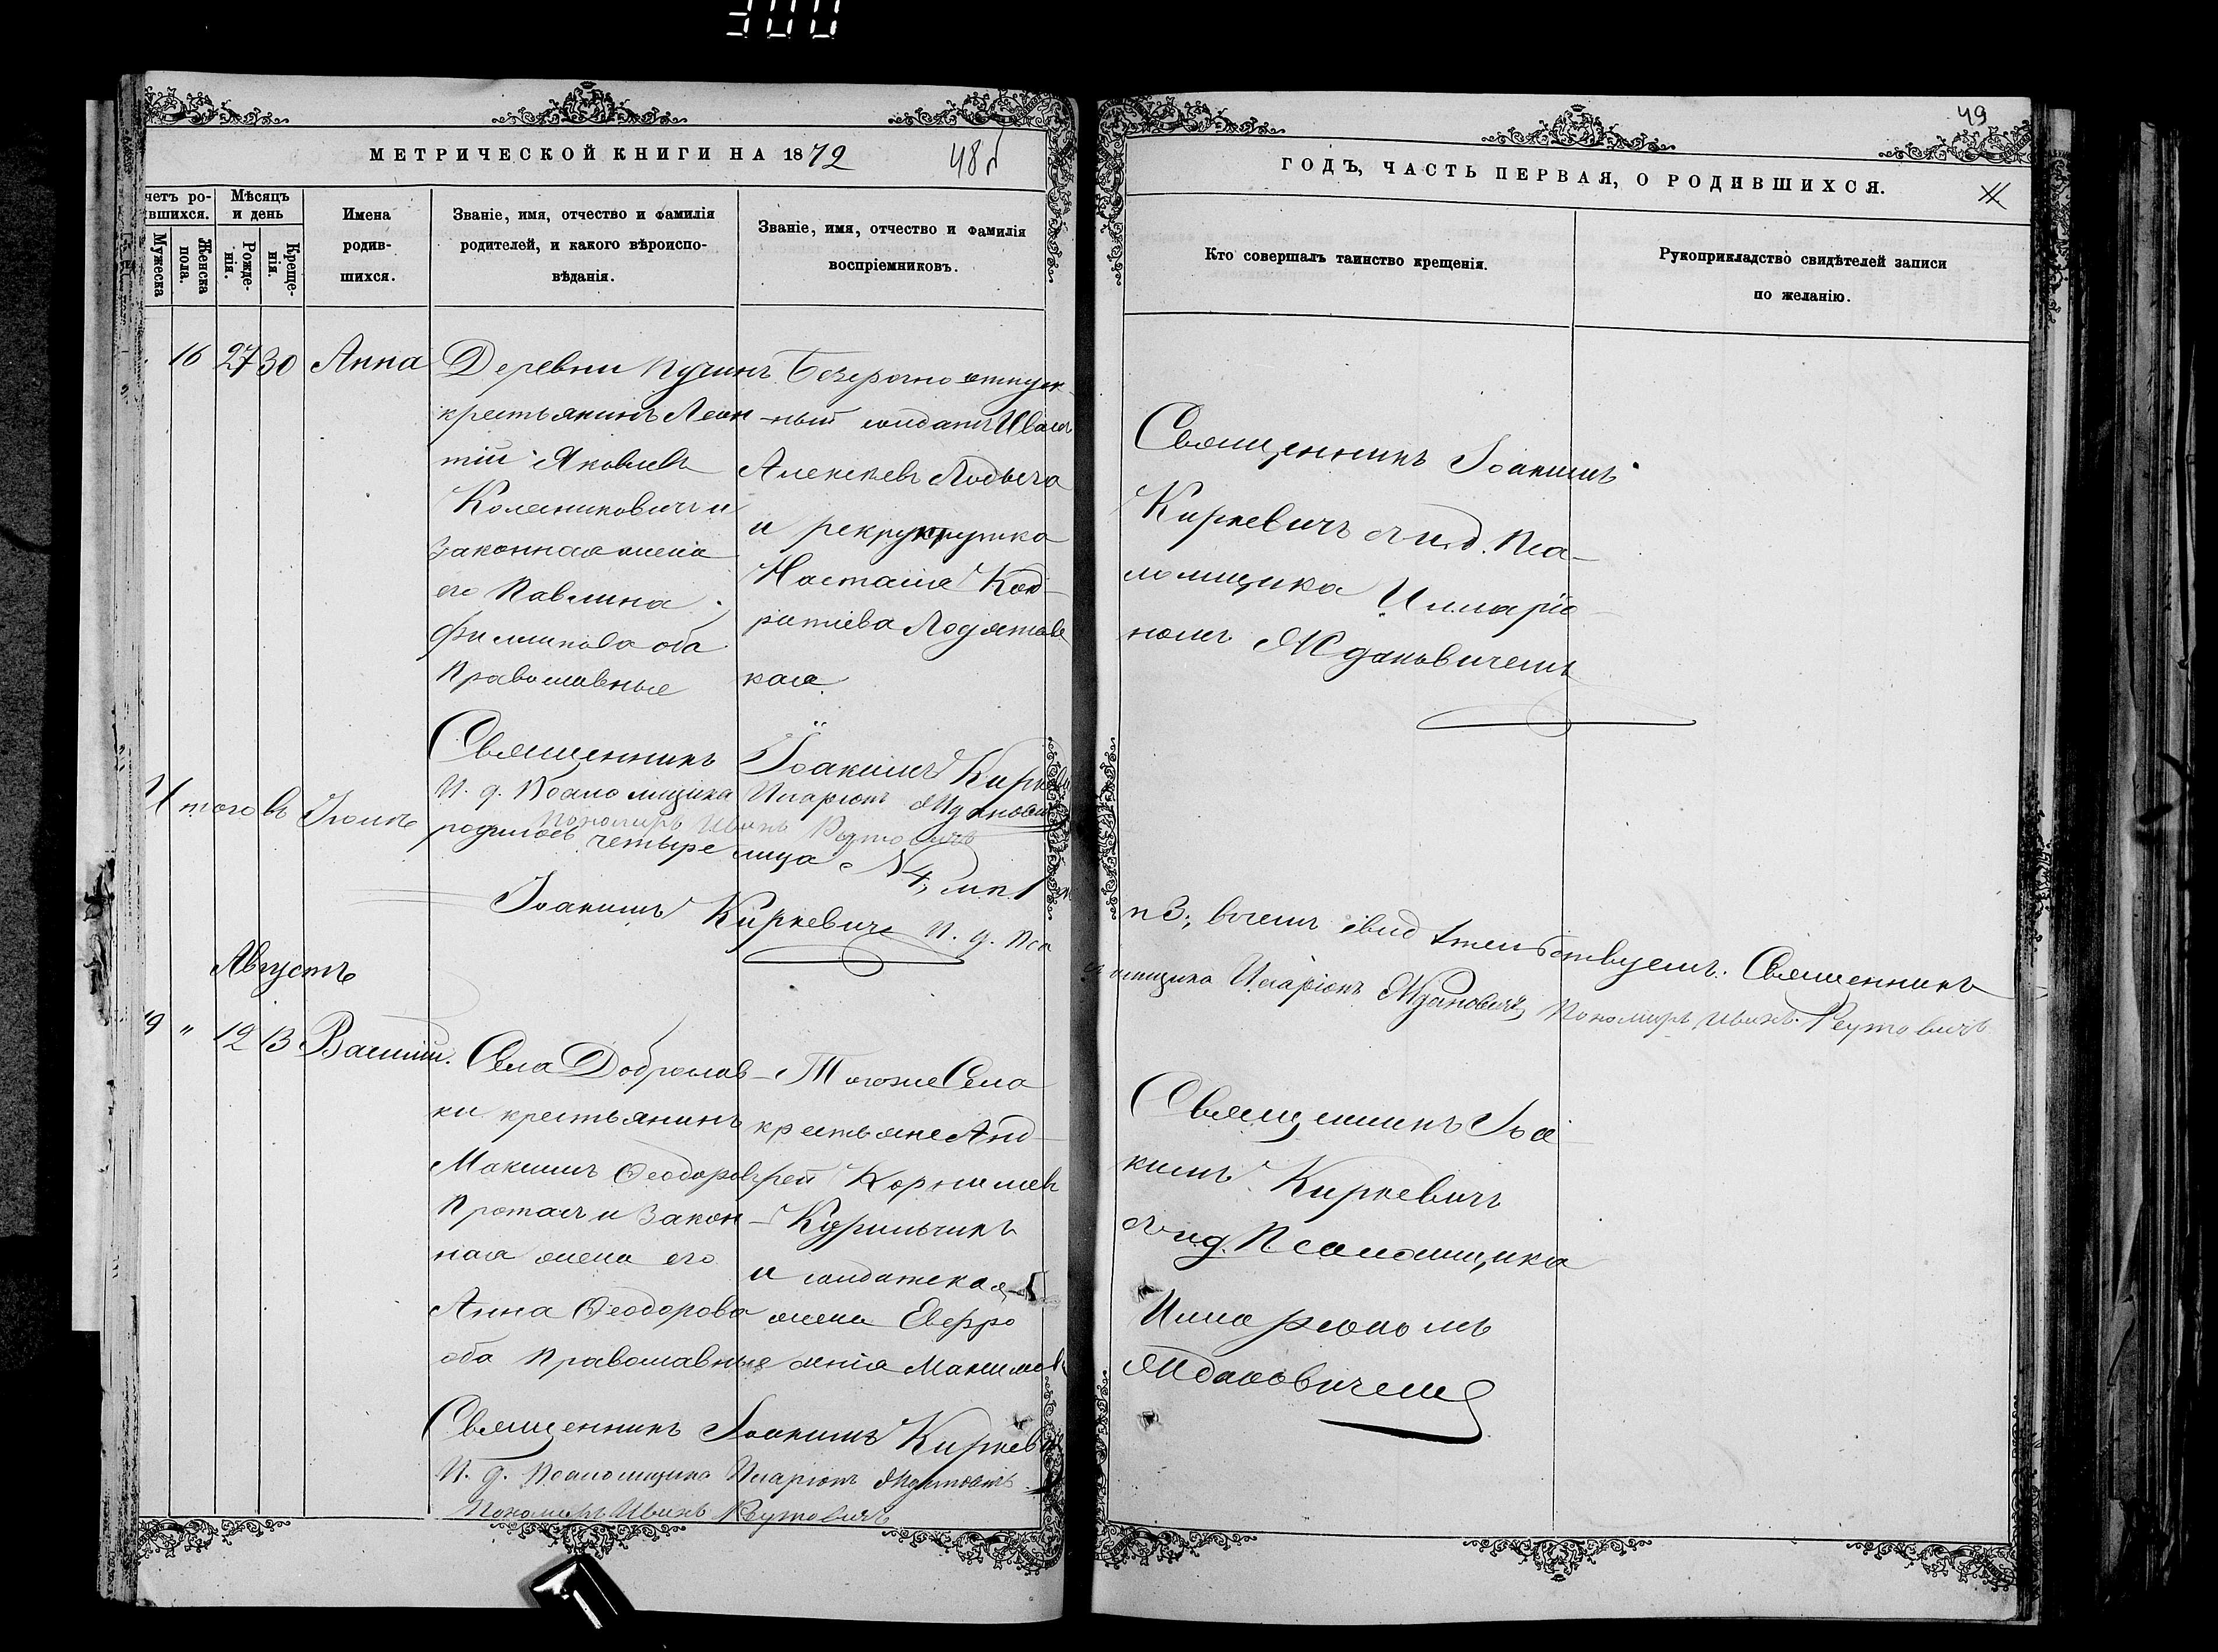 300
МЕТРИЧЕСКОЙ КНИГИ НА 1872
48б
четъ ро-
вшихся.
Мужеска
Женска
пола.
Мѣсяцъ
и день
Рожде-
нія.
Креще-
нія.
Имена
родив-
шихся.
Званіе, имя, отчество и фамилія
родителей, и какого вѣроиспо-
вѣданія.
Званіе, имя, отчество и фамилія
воспріемниковъ.
16 27 30 Анна
Деревни Пучинъ
крестьянинъ Леон
тій Яковлевъ
Колениковичъ и
законная жена
его Павлина
Филипова оба
Православные
Безсрочно отпуск
-ный солдатъ Иванъ
Алексѣевъ Лодыга
и рекрутка
Настасія Код-
ратіева
кая.
Священникъ Іоакимъ Киркевичъ
И. д. Псаломщика Иларіонъ Ждановичъ
Пономарь Иванъ Реутовичъ
Итого въ Іюлѣ родилось четыре лица № 4, м.п. 1
Іоакимъ Киркевичъ И. д. Пса
Августъ
19 " 12 13 Василій.
Села Доброслав-
ки крестьянинъ
Максимъ Ѳеодоровъ
Протасъ и закон-
ная жена его
Анна Ѳеодорова
оба Православные
Тогоже Села
крестьяне Анд-
рей Корнилиевъ
Кудрильчикъ
и солдатская
жена Евфро
синія Максимов
Священникъ Іоакимъ Киркевичъ
И. д. Псаломщика Иларіонъ Ждановичъ
Пономарь Иванъ Реутовичъ
49
ГОДЪ, ЧАСТЬ ПЕРВАЯ, О РОДИВШИХСЯ.
Кто совершалъ таинство крещенія.
Рукоприкладство свидѣтелей записи
по желанію.
Священникъ Іоакимъ
Киркевичъ съ и.д. Пса-
ломщика Илларіо-
номъ Ждановичемъ
п 3; въ чемъ свидѣтельствуемъ: Священникъ
ломщика Иларіонъ Ждановичъ Пономарь Иванъ Реутовичъ
Священникъ Іоа
кимъ Киркевичъ
съ и.д. Псаломщика
Илларіономъ
Ждановичемъ